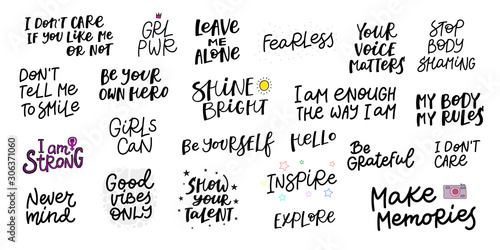 I DON'T CARE
IF YOU LIKE ME
OR NOT
GRL
PWR
LEAVE
ME
ALONE
FEARLESS
YOUR
VOICE
MATTERS
STOP
BODY
SHAMING
DON'T
TELL ME
TO SMILE
BE YOUR
OWN HERO
SHINE
BRIGHT
I AM ENOUGH
THE WAY I AM
MY BODY,
MY RULES
I am
STRONG
GIRLS
CAN
Be YOURSELF
HELLO
Be
GRATEFUL
I DON'T
CARE
Never
mind
Good
vibes
ONLY
SHOW
YOUR
TALENT
INSPIRE
EXPLORE
MAKE
MEMORIES
Adobe Stock | #306371060